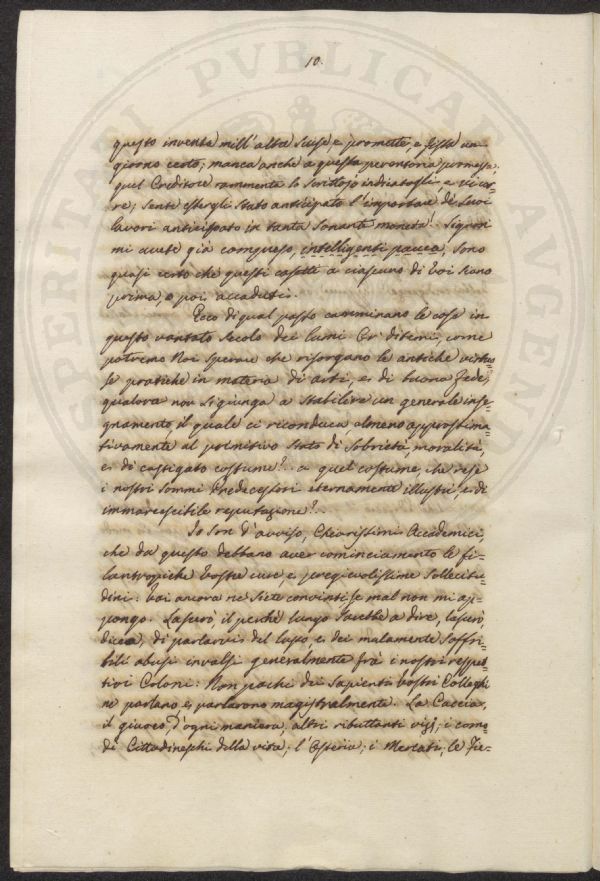 PROSPERITATI PVBLICAE AVGENDAE
10.
questo inventa mill'altre scuse, e promette, e fissa un
giorno certo; manca anche a questa perentoria promessa;
quel Creditore rammenta lo
re; sente essergli stato anticipato l'importare de' suoi
lavori anticipato in tanta sonante moneta! Signori
mi avete già compreso, intelligenti pauca, sono
quasi certo che questi casetti a ciascuno di voi siano
prima, o poi accaduti.
Ecco di qual passo camminano le cose in
questo vantato Secolo dei lumi Or ditemi, come
potremo Noi sperare che risorgano le antiche virtuo=
se pratiche in materia di arti, e di buona fede,
qualora non si giunga a stabilire un generale inse=
gnamento, il quale ci riconduca, almeno approssima=
tivamente al primitivo stato di sobrietà, moralità,
e di castigato costume? a quel costume, che rese
i nostri sommi Predecessori eternamente illustri, e di
immarcescibile reputazione?
Io son d'avviso, Chiarissimi Accademici,
che da questo debbano aver cominciamento le fi=
lantropiche vostre cure, e pregievolissime sollecitu=
dini: voi ancora ne siete convinti, se mal non mi ap=
pongo. Lascerò, il perché lungo sarebbe a dire, lascerò,
dicea, di parlarvi del lusso, e dei malamente soffri=
bili abusi invalsi generalmente frà i nostri rispet=
tivi Coloni: Non pochi dei sapienti vostri Colleghi
ne parlano, e parlarono magistralmente. La Caccia,
il giuoco, d'ogni maniera, altri ributtanti vizj; i como=
di Cittadineschi della vita; l'Osteria; i Mercati; le Fie=